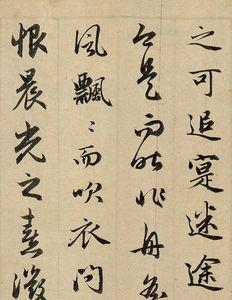 之可追寔迷途
今是而昨非舟
風飄〻而吹衣問
恨晨光之熹微